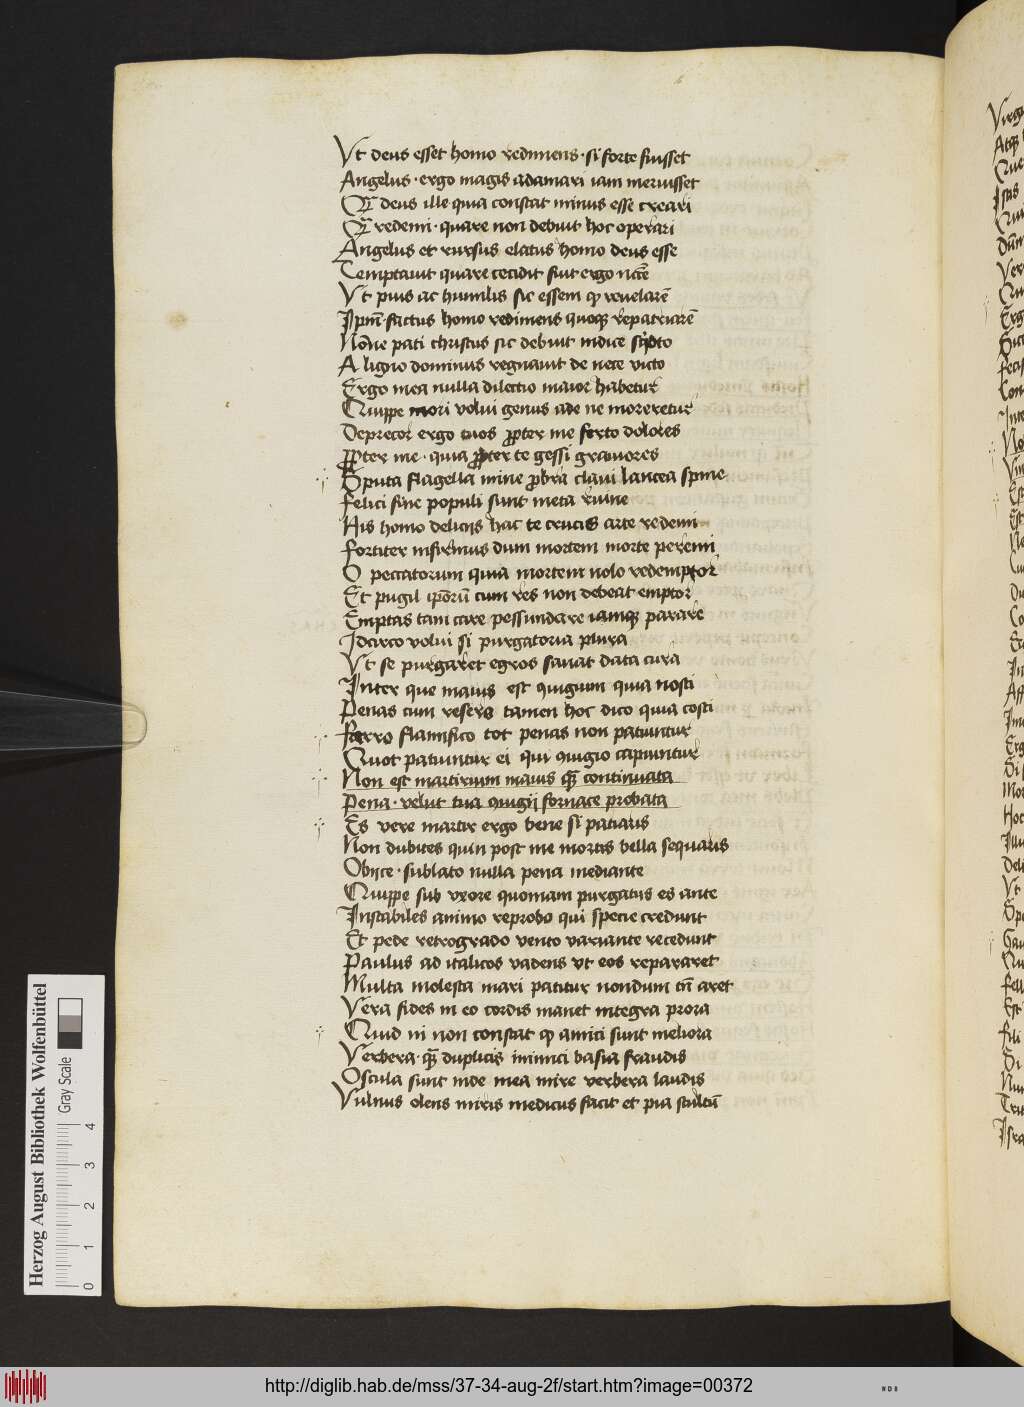 Vt deus esset homo redimens · si forte fuisset
Angelus · ergo magis adamari iam meruisset
deus ille quia constat minus esse creari
redemi · quare non debuit hoc operari
Angelus et rursus elatus homo deus esse
Temptauit quare cecidit fuit ergo nccē
Vt pius ac humilis sic essem ꝙ reuelarē
Ipm̄ · factus homo redimens quoqꝫ repatriarē
Nōne pati christus sic debuit indice scripto
A ligno dominus regnauit de nece victo
Ergo mea nulla dilectio maior habetur
Quippe mori volui genus ade ne moreretur
Deprecor ergo tuos ꝓpter me ferto dolores
ꝓpter me · quia ꝓpter te gessi grauiores
Sputa flagella mine ꝓbra claui lancea spine
Felici fine populi sunt meta ruine
His homo delicijs hac te crucis arte redemi
Fortiter infirmus dum mortem morte peremi
O peccatorum quia mortem nolo redemptor
Et pugil ip̄orū cum res non debeat emptor
Emptas tam care pessundare iamqꝫ parare
Idcirco volui si purgatoria plura
Vt se purgaret egros sanat data cura
Inter que maius est coniugium quia nosti
Penas cum reseris tamen hoc dico quia costi
Ferro flamifico tot penas non patiuntur
Quot patiuntur ei qui coniugio capiuntur
Non est martirium maius qᷓ continuata
Pena · velut tua coniugij fornace probata
Es vere martir ergo bene si patiaris
Non dubites quin post me mortis bella sequaris
Obice · sublato nulla pena mediante
Quippe sub vxore quoniam purgatus es ante
Instabiles animo reprobo qui specie credunt
Et pede retrogrado vento variante recedunt
Paulus ad italicos vadens vt eos repararet
Multa molesta mari patitur nondum tn̄ aret
Vera fides in eo cordis manet integra prora
Quid ni non constat ꝙ amici sunt meliora
Verbera · qᷓ duplicis inimici basia fraudis
Oscula sunt inde mea mire verbera laudis
Vulnus olens miris medicus facit et pia stultū
Herzog August Bibliothek Wolfenbüttel
Gray Scale
0 1 2 3 4
http://diglib.hab.de/mss/37-34-aug-2f/start.htm?image=00372